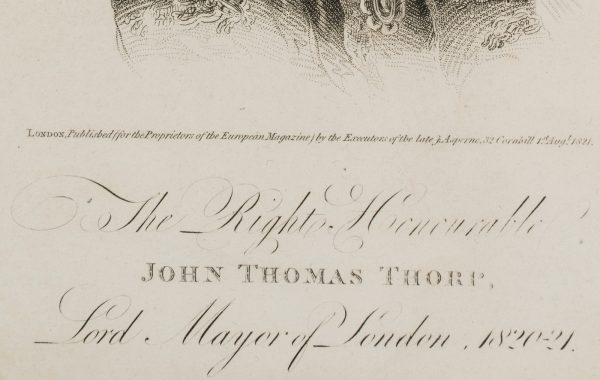 LONDON, Published (for the Proprietors of the European Magazine) by the Executors of the late J. Asperne, 32 Cornhill 1st Augt. 1821.
The Right Honourable
JOHN THOMAS THORP,
Lord Mayor of London, 1820-21.